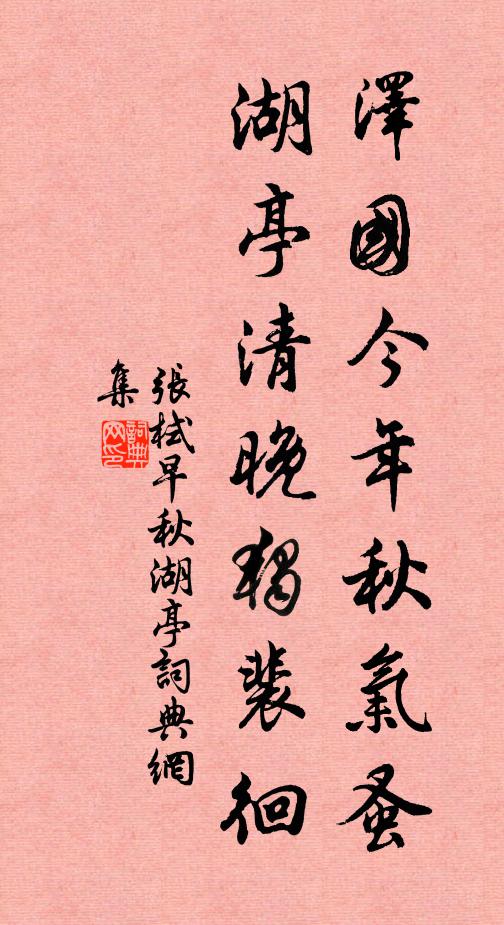 澤國今年秋氣蚤
湖亭清晚獨裴徊
張栻早秋湖亭詞典網
集
詞典
网印